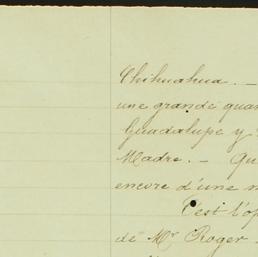 Chihuahua. —
une grande quan
Guadalupe y
Madre. — Qu
encore d'une m
C'est l'op
de Mr Roger